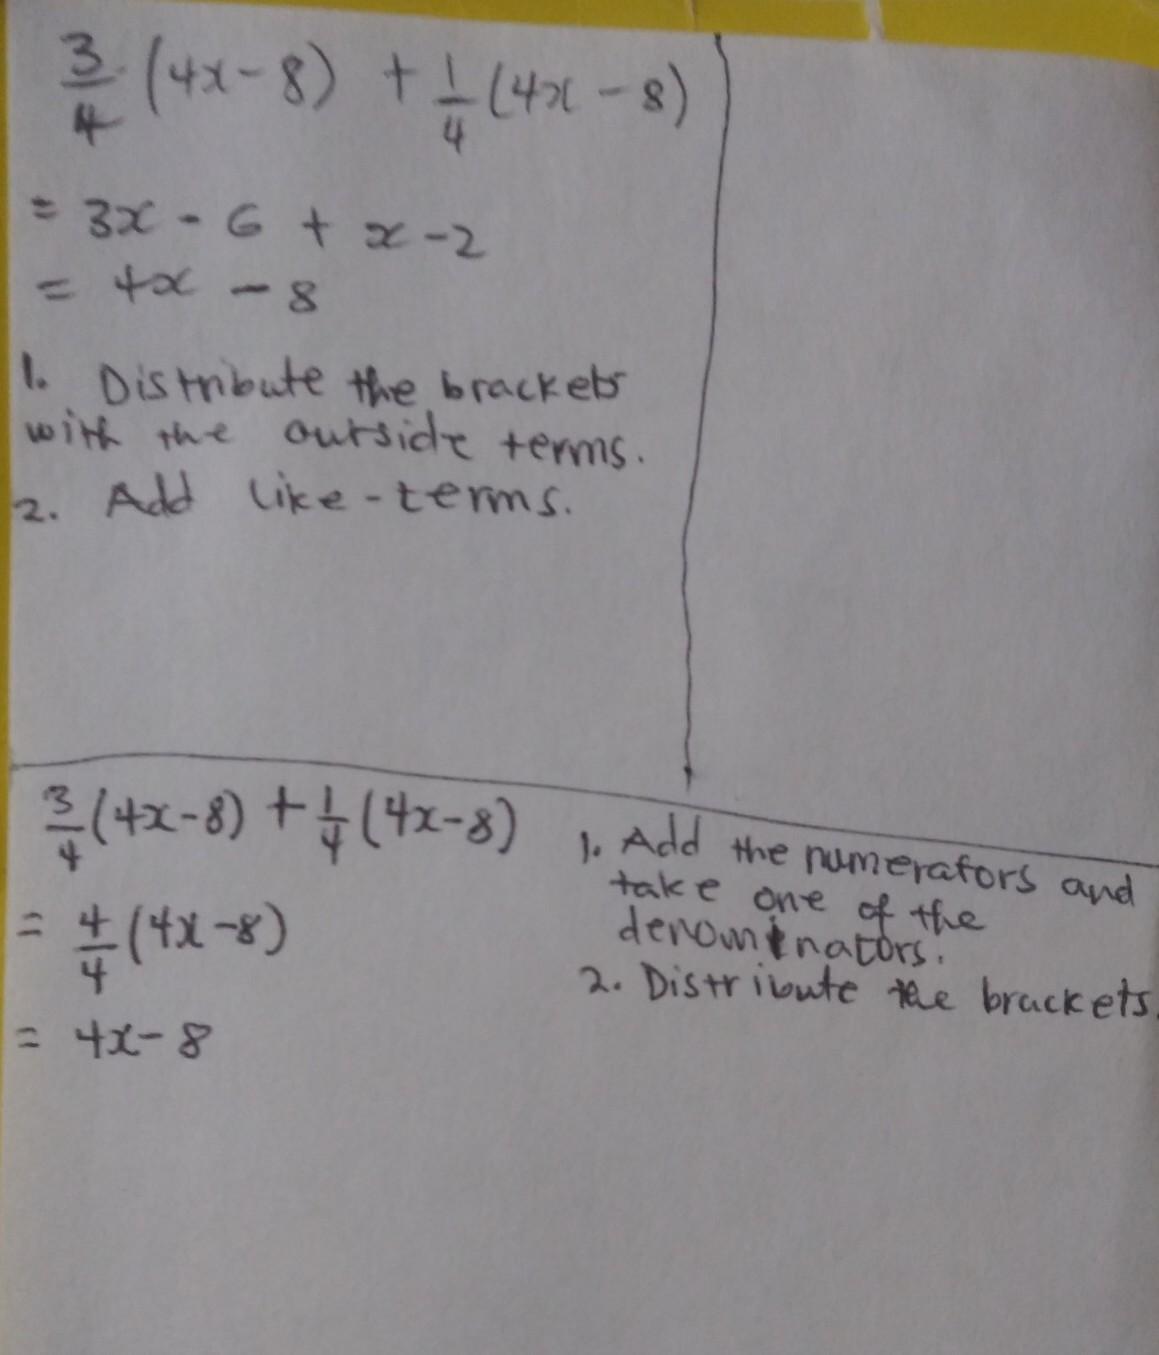 3/4 (4x - 8) + 1/4 (4x - 8)
= 3x - 6 + x - 2
= 4x - 8
1. Distribute the brackets
with the outside terms.
2. Add like-terms.
3/4 (4x - 8) + 1/4 (4x - 8)
= 4/4 (4x - 8)
= 4x - 8
1. Add the numerators and
take one of the
denominators.
2. Distribute the brackets.